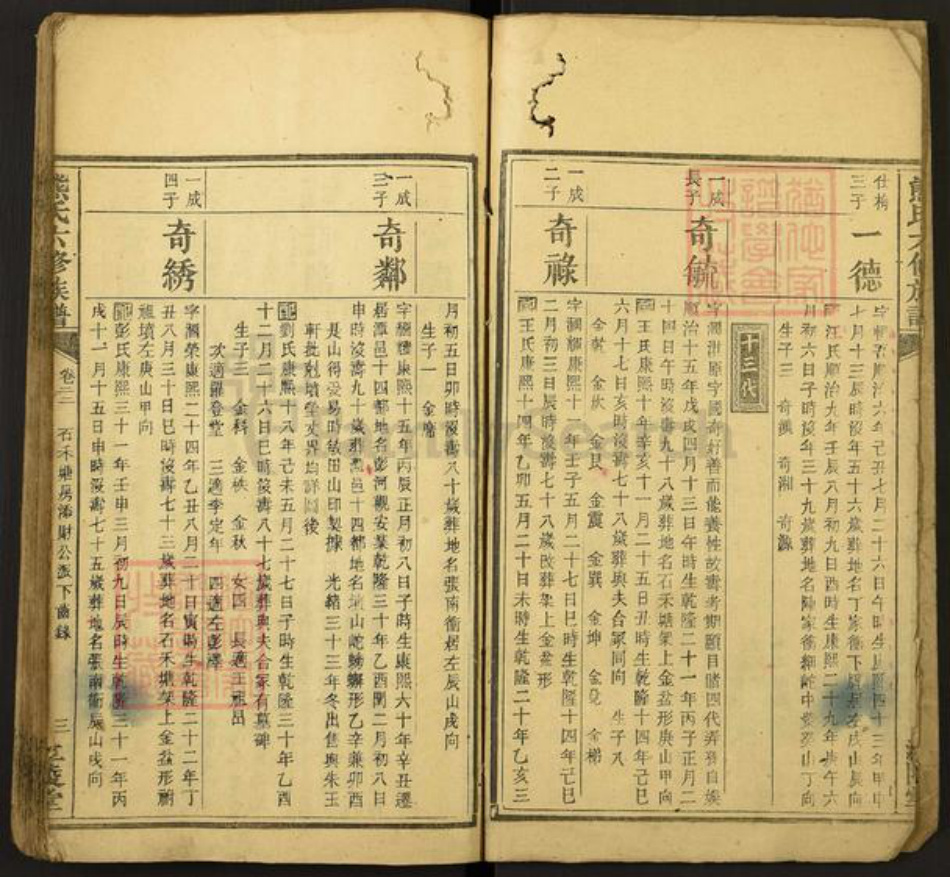 熊氏六修族譜
仕梅
三子
一德
七月十三辰時沒年五十六歲葬地名丁家衝下
配汪氏順治九年壬辰八月初九日酉時生康熙二十九年庚午六
月初六日子時沒年三十九歲葬地名陳家衝
生子三 奇毓 奇湘 奇源
十三代
一成
長子
奇毓
字潤湘原字國奇好善而能養性故壽考期頤目睹四代弄孫自娛
順治十五年戊戌四月十三日午時生乾隆二十一年丙子正月二
十四日午時沒壽九十八歲葬地名石禾塘架上金盆形庚山甲向
配王氏康熙十年辛亥十一月二十五日丑時生乾隆十四年己巳
六月十七日亥時沒壽七十八歲葬與夫合冢同向 生子八
金乾 金坎 金艮 金震 金巽 金坤 金兌 金梯
一成
二子
奇祿
字潤耀康熙十一年壬子五月二十七日巳時生乾隆十四年己巳
二月初三日辰時沒壽七十八歲改葬架上金盆形
配王氏康熙十四年乙卯五月二十日未時生乾隆二十年乙亥三
月初五日卯時沒壽八十歲葬地名張南衝居左辰山戌向
生子一 金席
一成
三子
奇鄰
字康熙十五年丙辰正月初八日子時生康熙六十年辛丑遷
居潭邑十四都地名彭河觀安業乾隆三十年乙酉閏二月初八日
申時沒壽九十歲葬邑十四都地名山蛇形乙辛兼卯酉
是山得受易時敏田山印契據 光緒三十三年冬出售與朱玉
軒批剋墳塋丈界均詳圖後
配劉氏康熙十八年己未五月二十七日子時生乾隆三十年乙酉
十二月二十六日巳時沒壽八十七歲葬與夫合冢有墓碑
生子三 金科 金秩 金秋 女四 長適王雅邑
次適羅登堂 三適李定年 四適左彭澤
一成
四子
奇綉
字潤榮康熙二十四年乙丑八月二十日寅時生乾隆二十二年丁
丑八月三十日巳時沒壽七十三歲葬地名石禾塘架上金盆形
祖墳左庚山甲向
配彭氏康熙三十一年壬申三月初九日辰時生乾隆三十一年丙
戌十一月十五日申時沒壽七十五歲葬地名張南衝辰山戌向
熊氏六修族譜
卷三
石禾塘房添財公派下齒錄
三
江陵堂